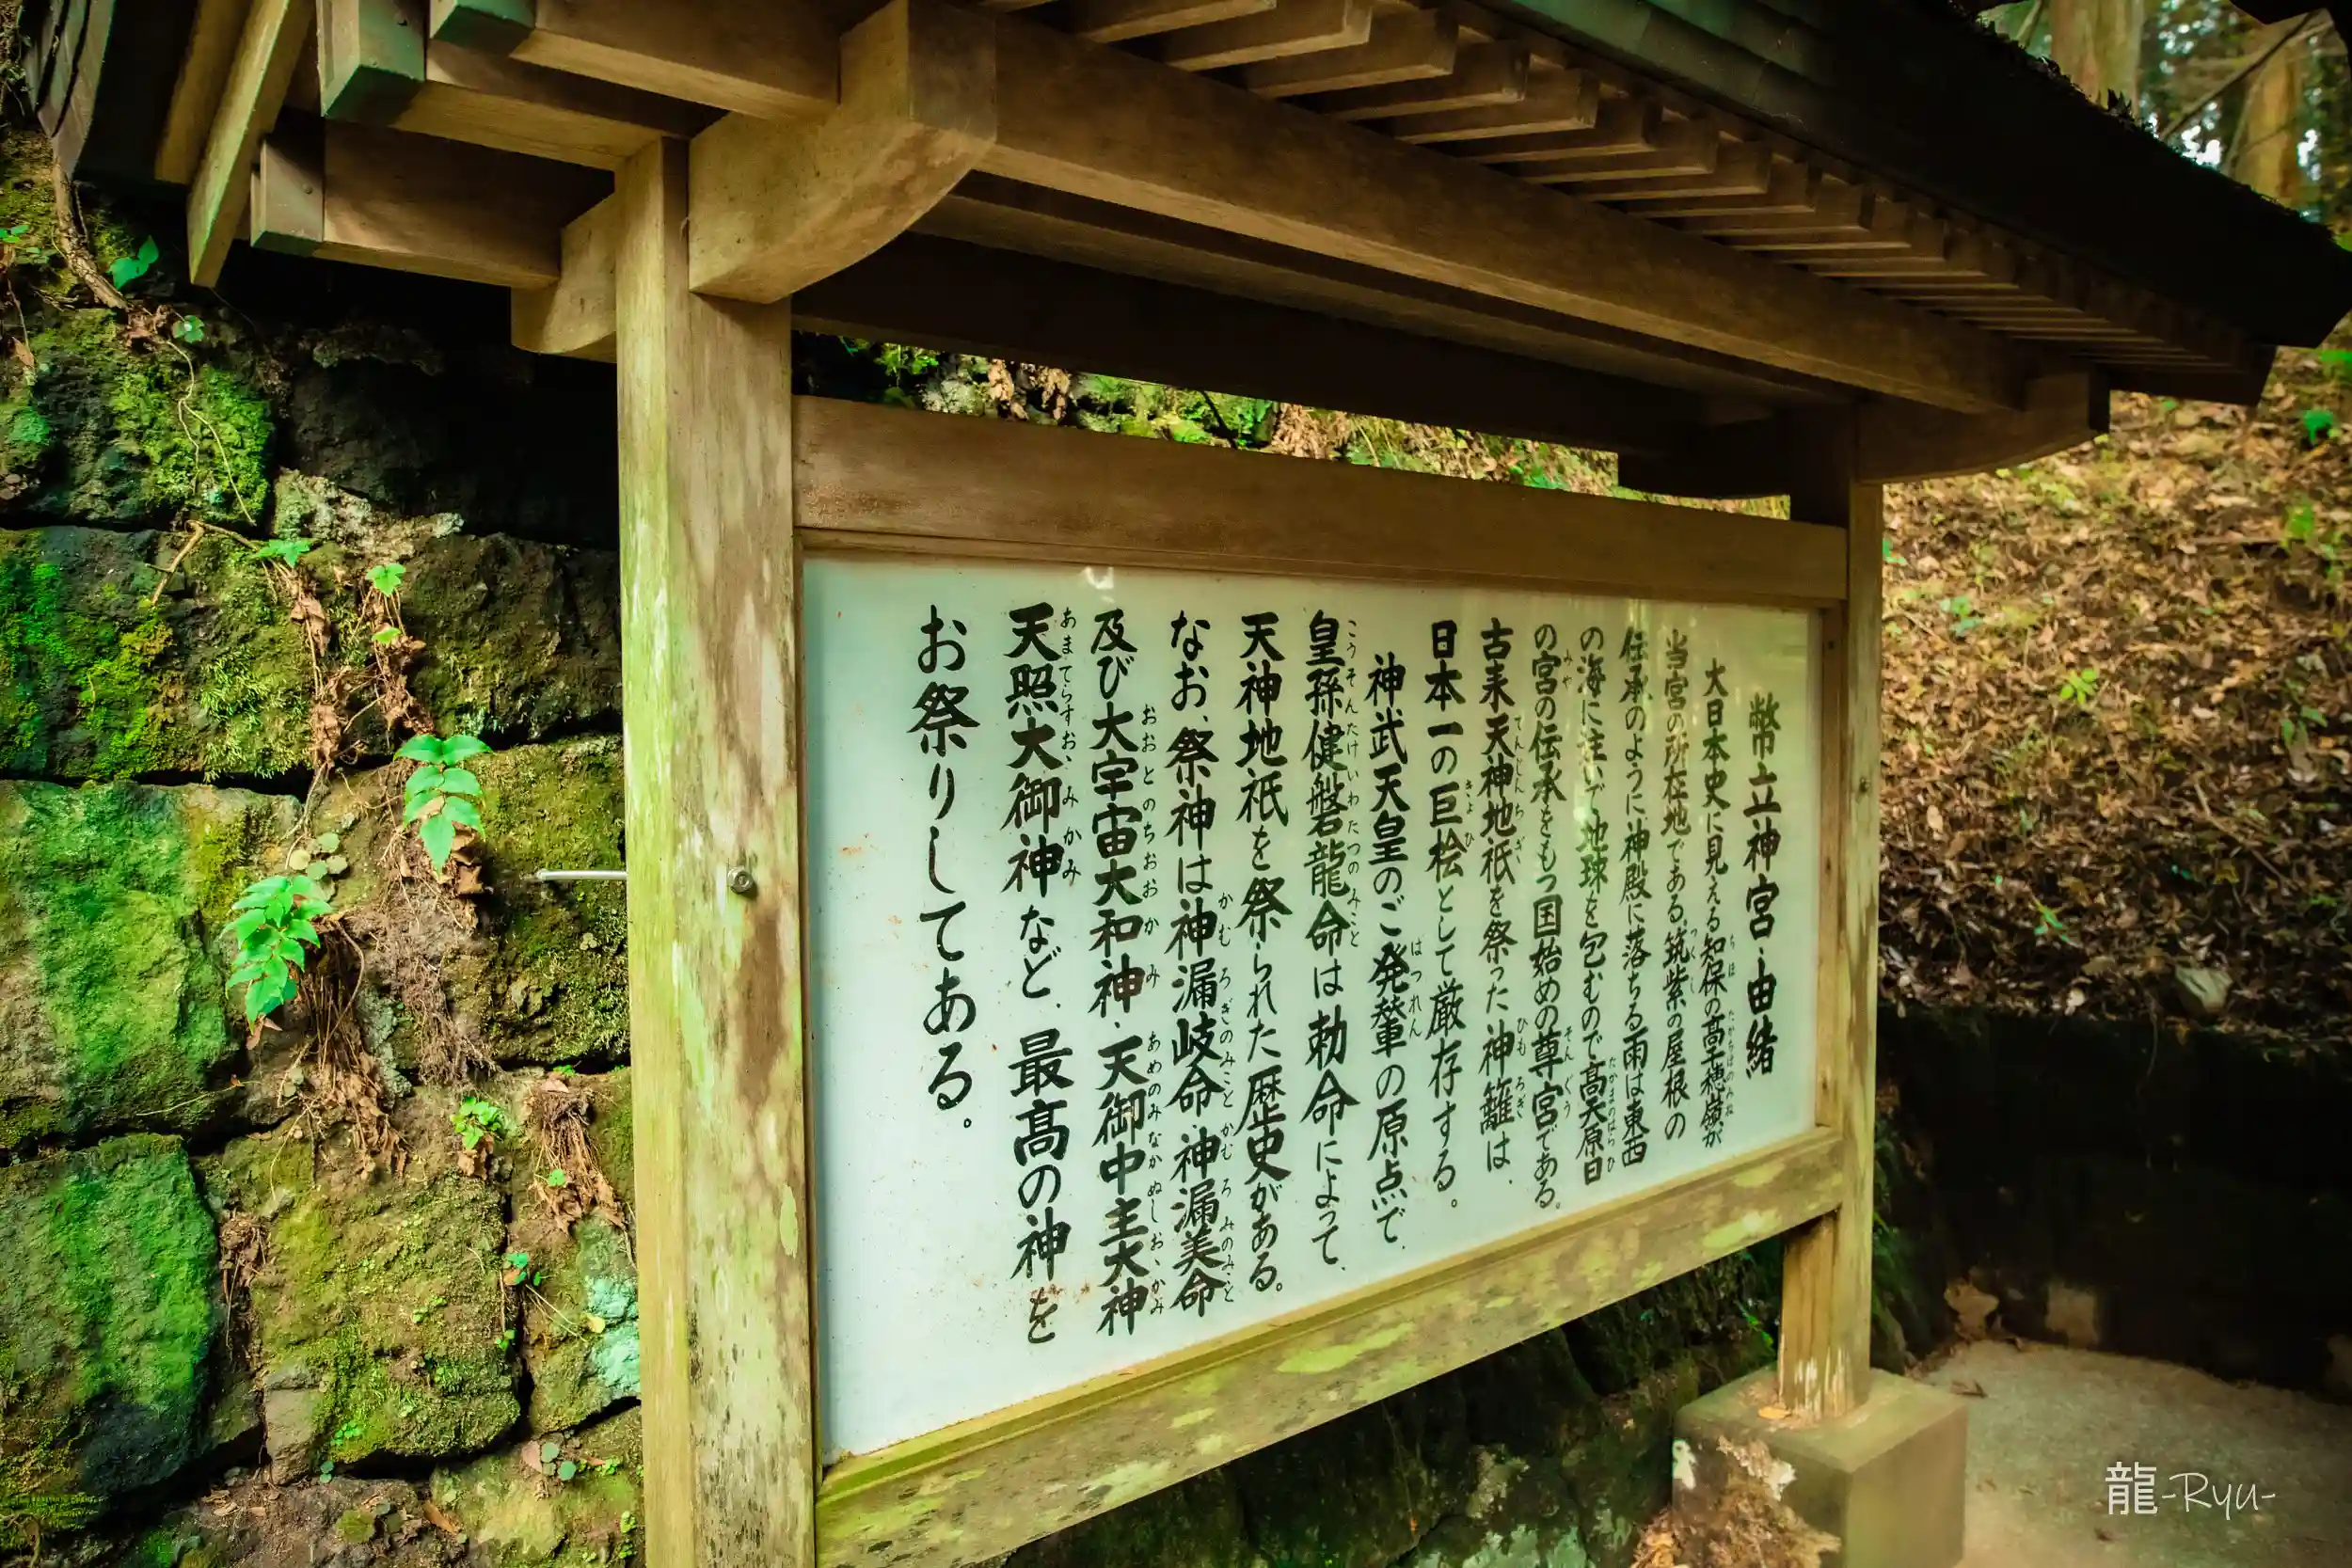 幣立神宮・由緒
大日本史に見える知保の高千穂嶺が
当宮の所在地である。筑紫の屋根の
伝承のように神殿に落ちる雨は東西
の海に注いで地球を包むので高天原日
の宮の伝承をもつ国始めの尊宮である。
古来天神地祇を祭った神籬は、
日本一の巨桧として厳存する。
神武天皇のご発輦の原点で、
皇孫健磐龍命は勅命によって、
天神地祇を祭られた歴史がある。
なお、祭神は神漏岐命・神漏美命
及び大宇宙大和神・天御中主大神
天照大御神など、最高の神を
お祭りしてある。
龍-Ryu-